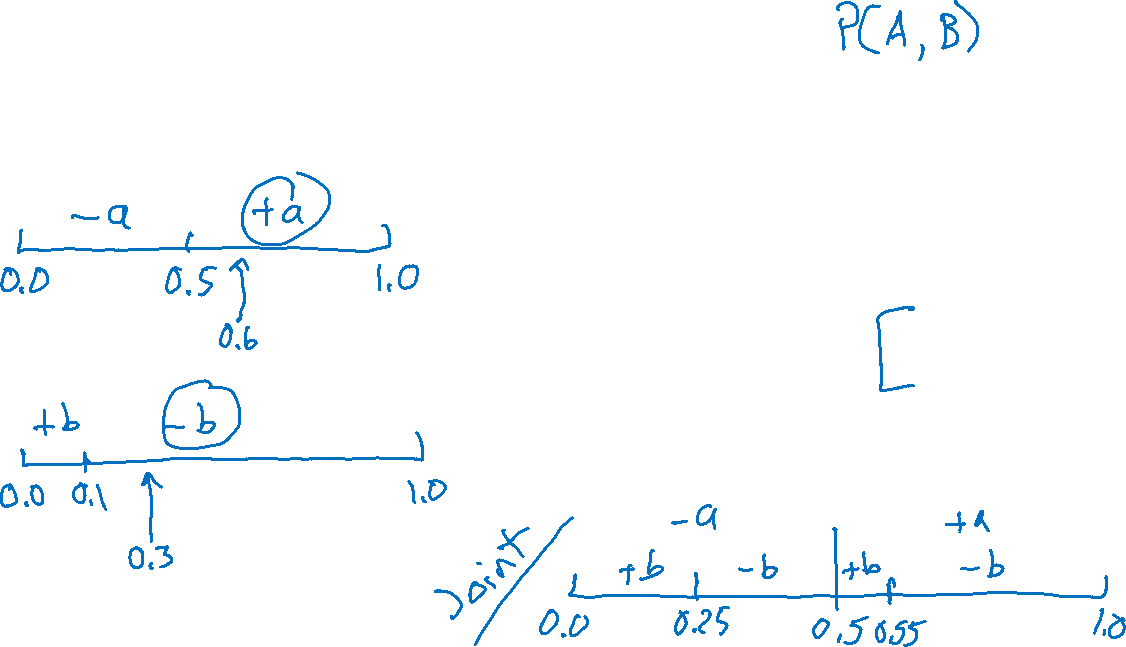 P(A, B)
-a +a
0.0 0.5 1.0
0.6
+b -b
0.0 0.1 1.0
0.3
Joint
-a +a
+b -b +b -b
0.0 0.25 0.5 0.55 1.0